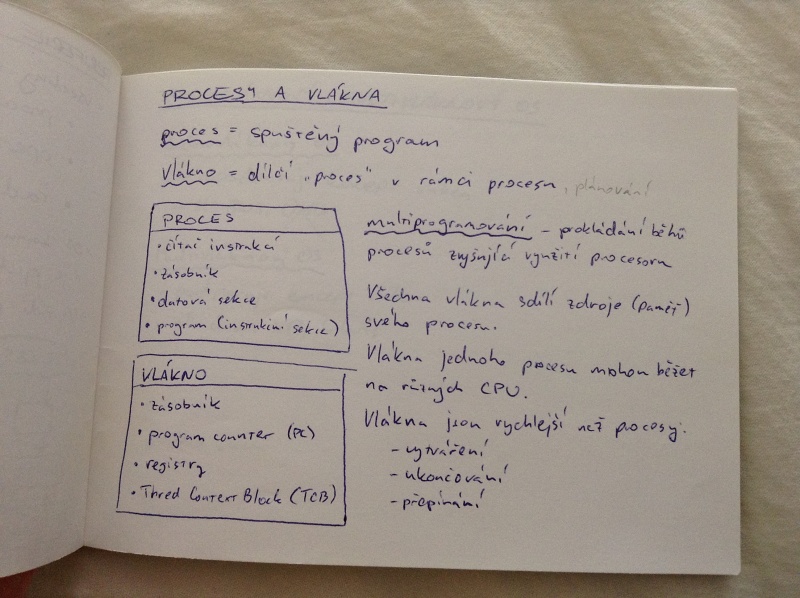 PROCESY A VLÁKNA
proces = spuštěný program
vlákno = dílčí „proces“ v rámci procesu, plánování
PROCES
• čítač instrukcí
• zásobník
• datová sekce
• program (instrukční sekce)
VLÁKNO
• zásobník
• program counter (PC)
• registry
• Thred Context Block (TCB)
multiprogramování – prokládání běhů
procesů zvyšující využití procesoru
Všechna vlákna sdílí zdroje (paměť)
svého procesu.
Vlákna jednoho procesu mohou běžet
na různých CPU.
Vlákna jsou rychlejší než procesy:
– vytváření
– ukončování
– přepínání